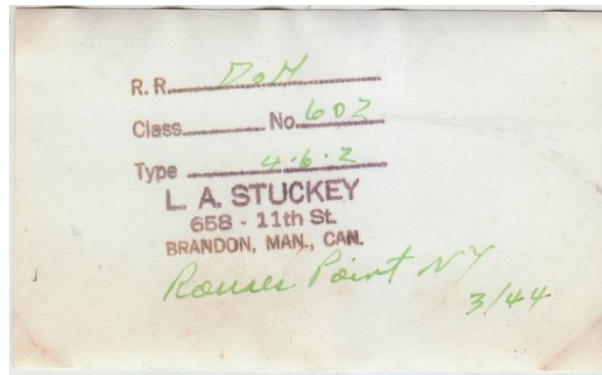 R. R. D&H
Class No. 602
Type 4-6-2
L. A. STUCKEY
658 - 11th St.
BRANDON, MAN., CAN.
Rouses Point NY
3/44